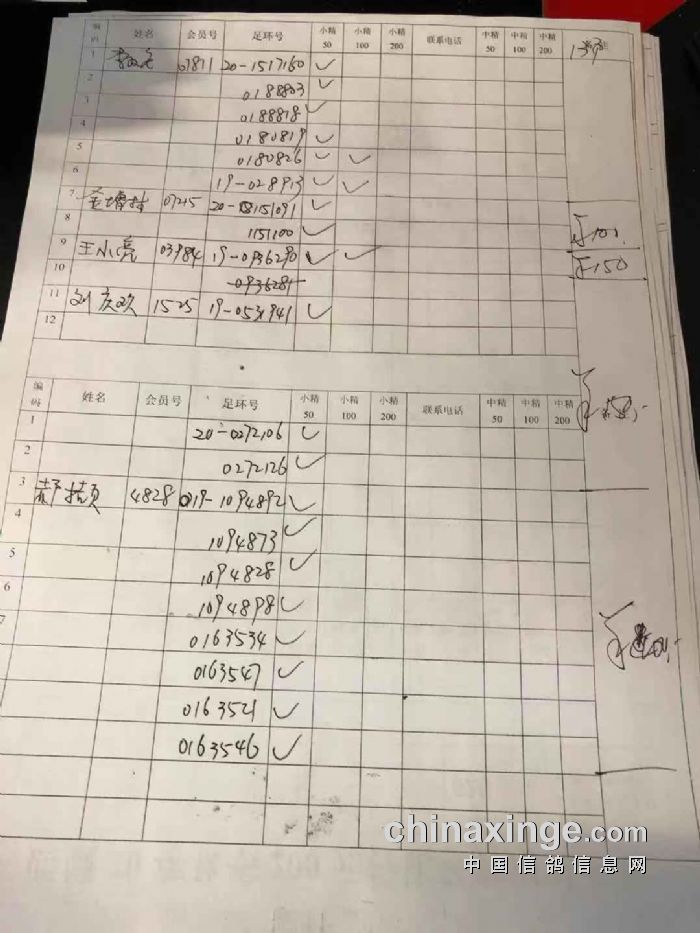 编码 姓名 会员号 足环号 小精50 小精100 小精200 联系电话 中精50 中精100 中精200
1 20-1517160 ✓
2 0188803 ✓
3 0188818 ✓
4 0180819 ✓
5 0180826 ✓ ✓
6 19-028913 ✓ ✓
7 07215 20-1151091 ✓
8 1151100 ✓
9 王小亮 03984 19-0936290 ✓ ✓
10 0936281
11 刘庆欢 1525 19-0531941 ✓
12
编码 姓名 会员号 足环号 小精50 小精100 小精200 联系电话 中精50 中精100 中精200
1 20-0272106 ✓
2 0272126 ✓
3 4828 019-1094892 ✓
4 1094873 ✓
5 1094828 ✓
6 1094898 ✓
7 0163534 ✓
0163547 ✓
0163521 ✓
0163546 ✓
chinaxinge.com
中国信鸽信息网